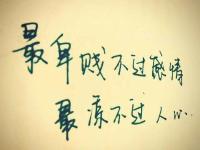 最卑贱不过感情
最凉不过人心..